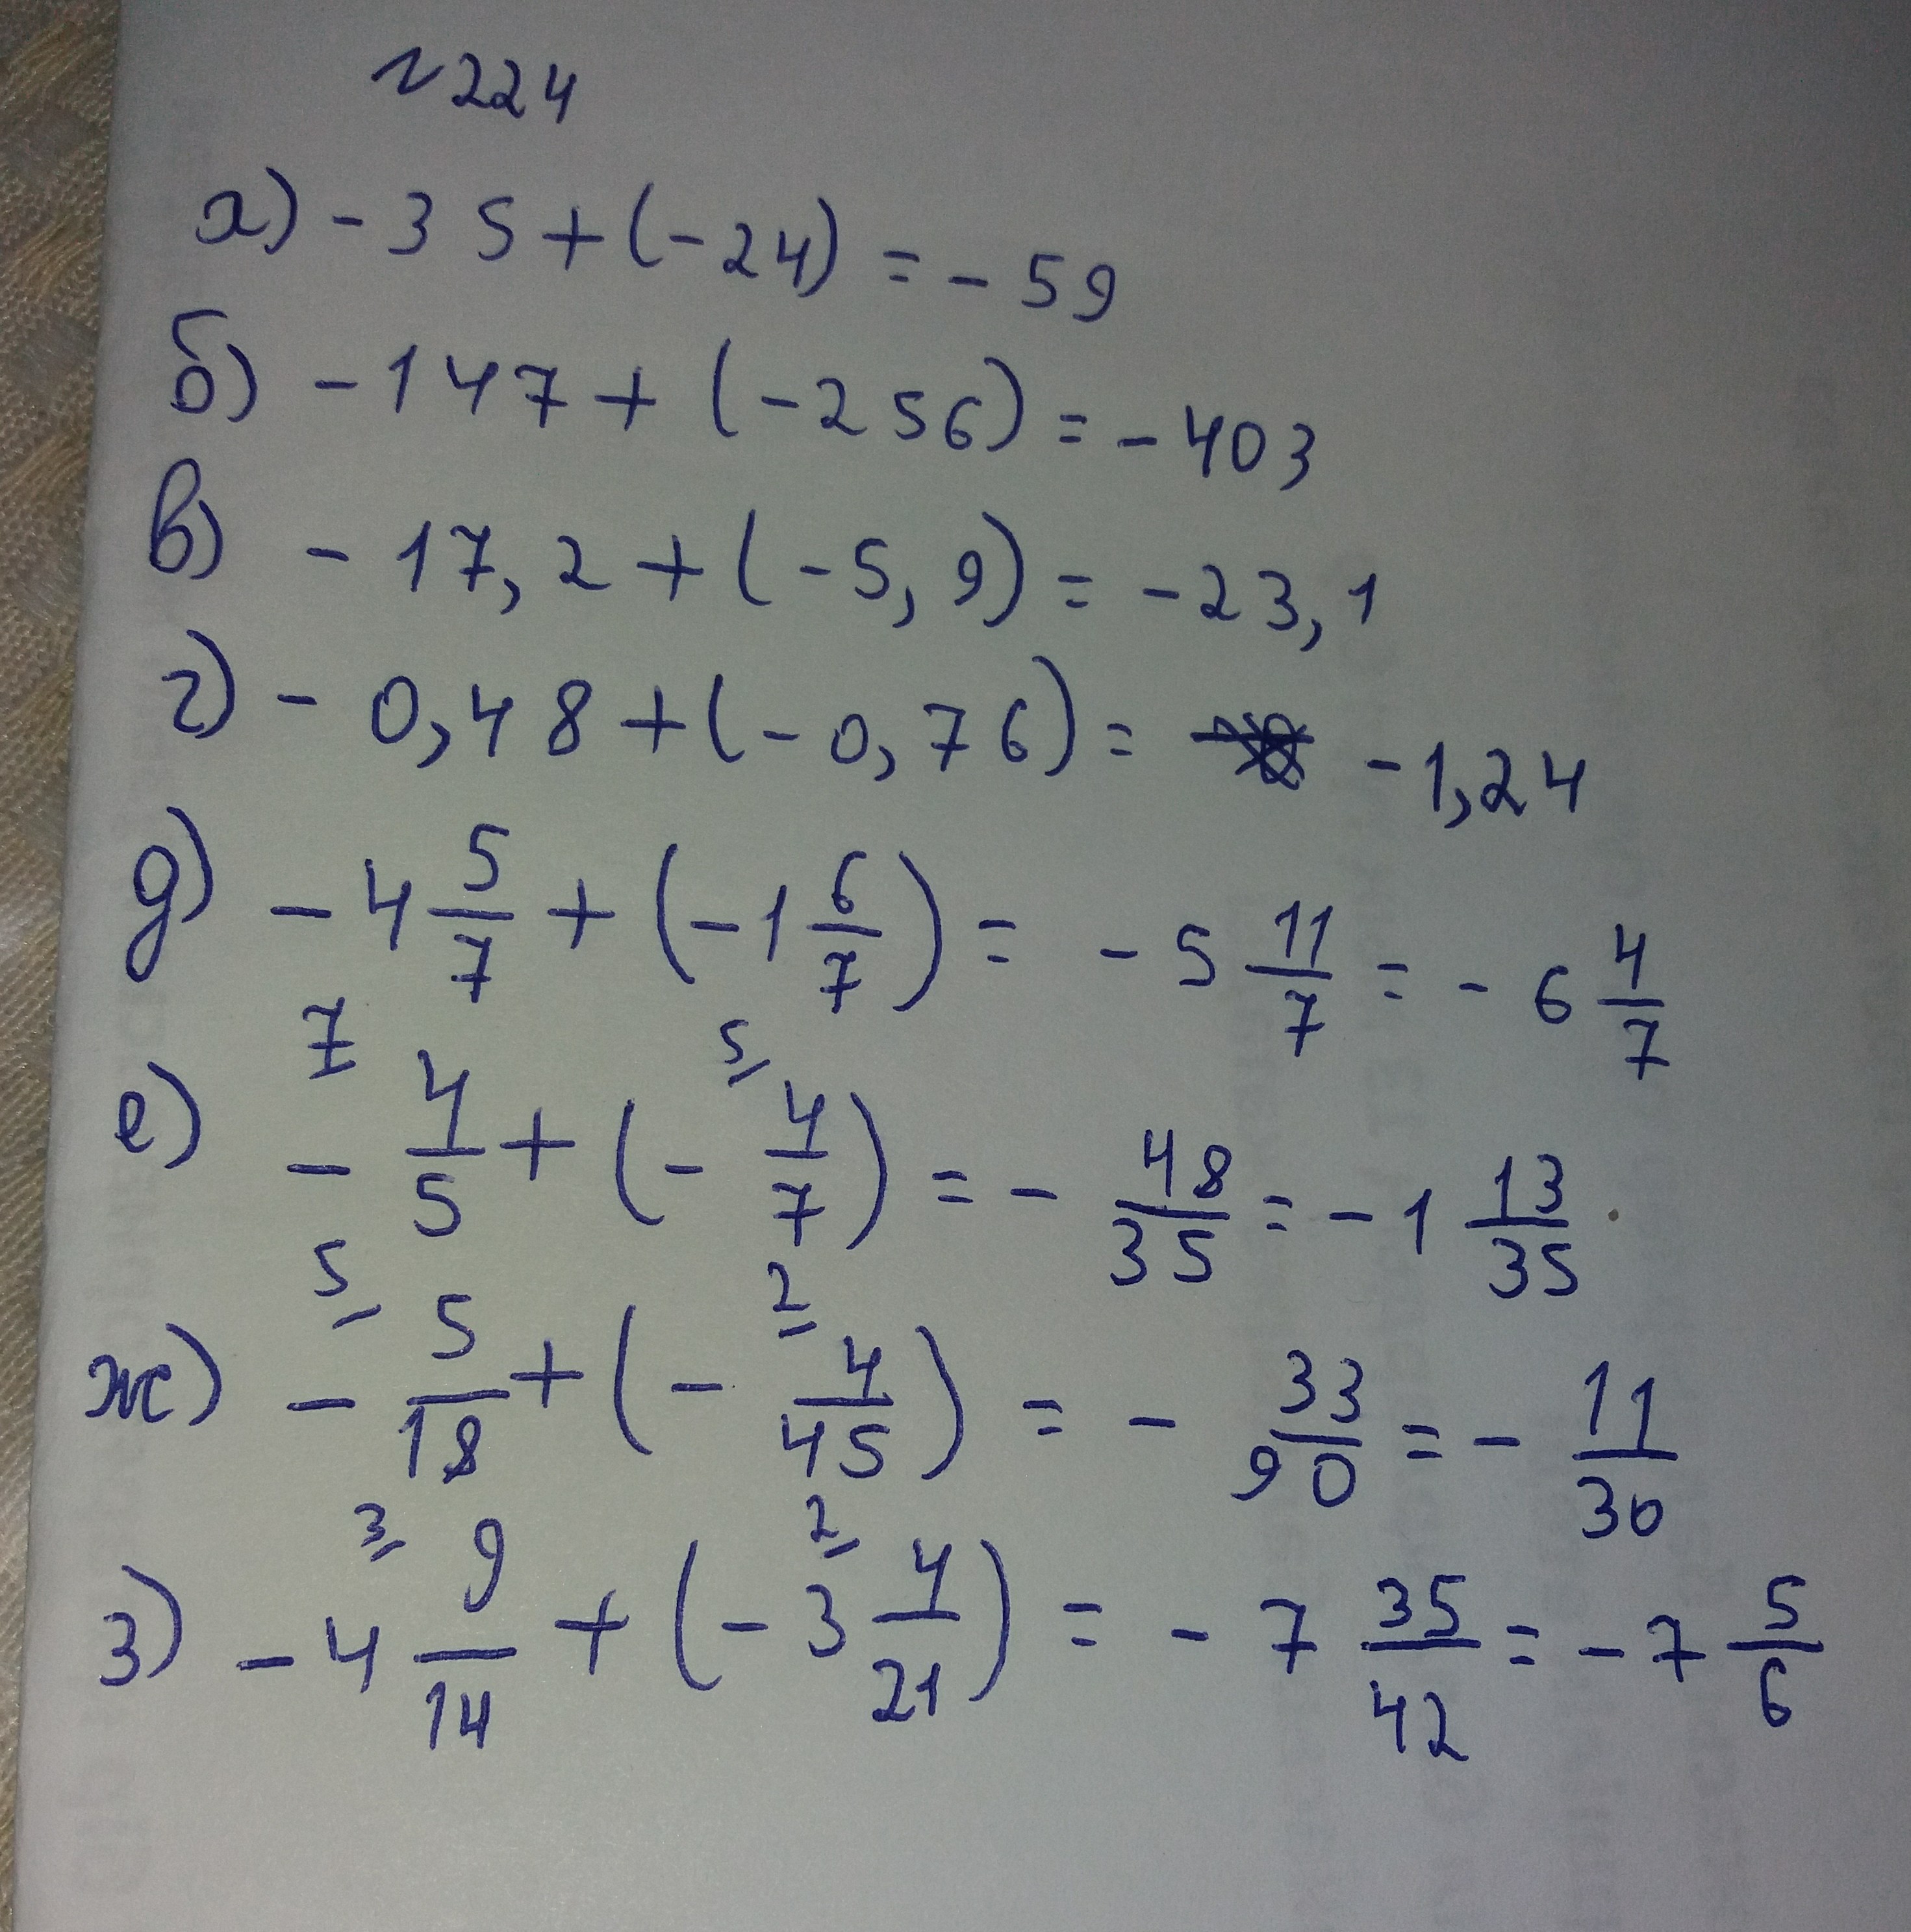 №224
а) -35+(-24) = -59
б) -147+(-256) = -403
в) -17,2+(-5,9) = -23,1
г) -0,48+(-0,76) = -1,24
д) -4 5/7 + (-1 6/7) = -5 11/7 = -6 4/7
7 5
е) - 4/5 + (- 4/7) = - 48/35 = -1 13/35
5 2
ж) - 5/18 + (- 4/45) = - 33/90 = - 11/30
3 2
з) -4 9/14 + (-3 4/21) = -7 35/42 = -7 5/6